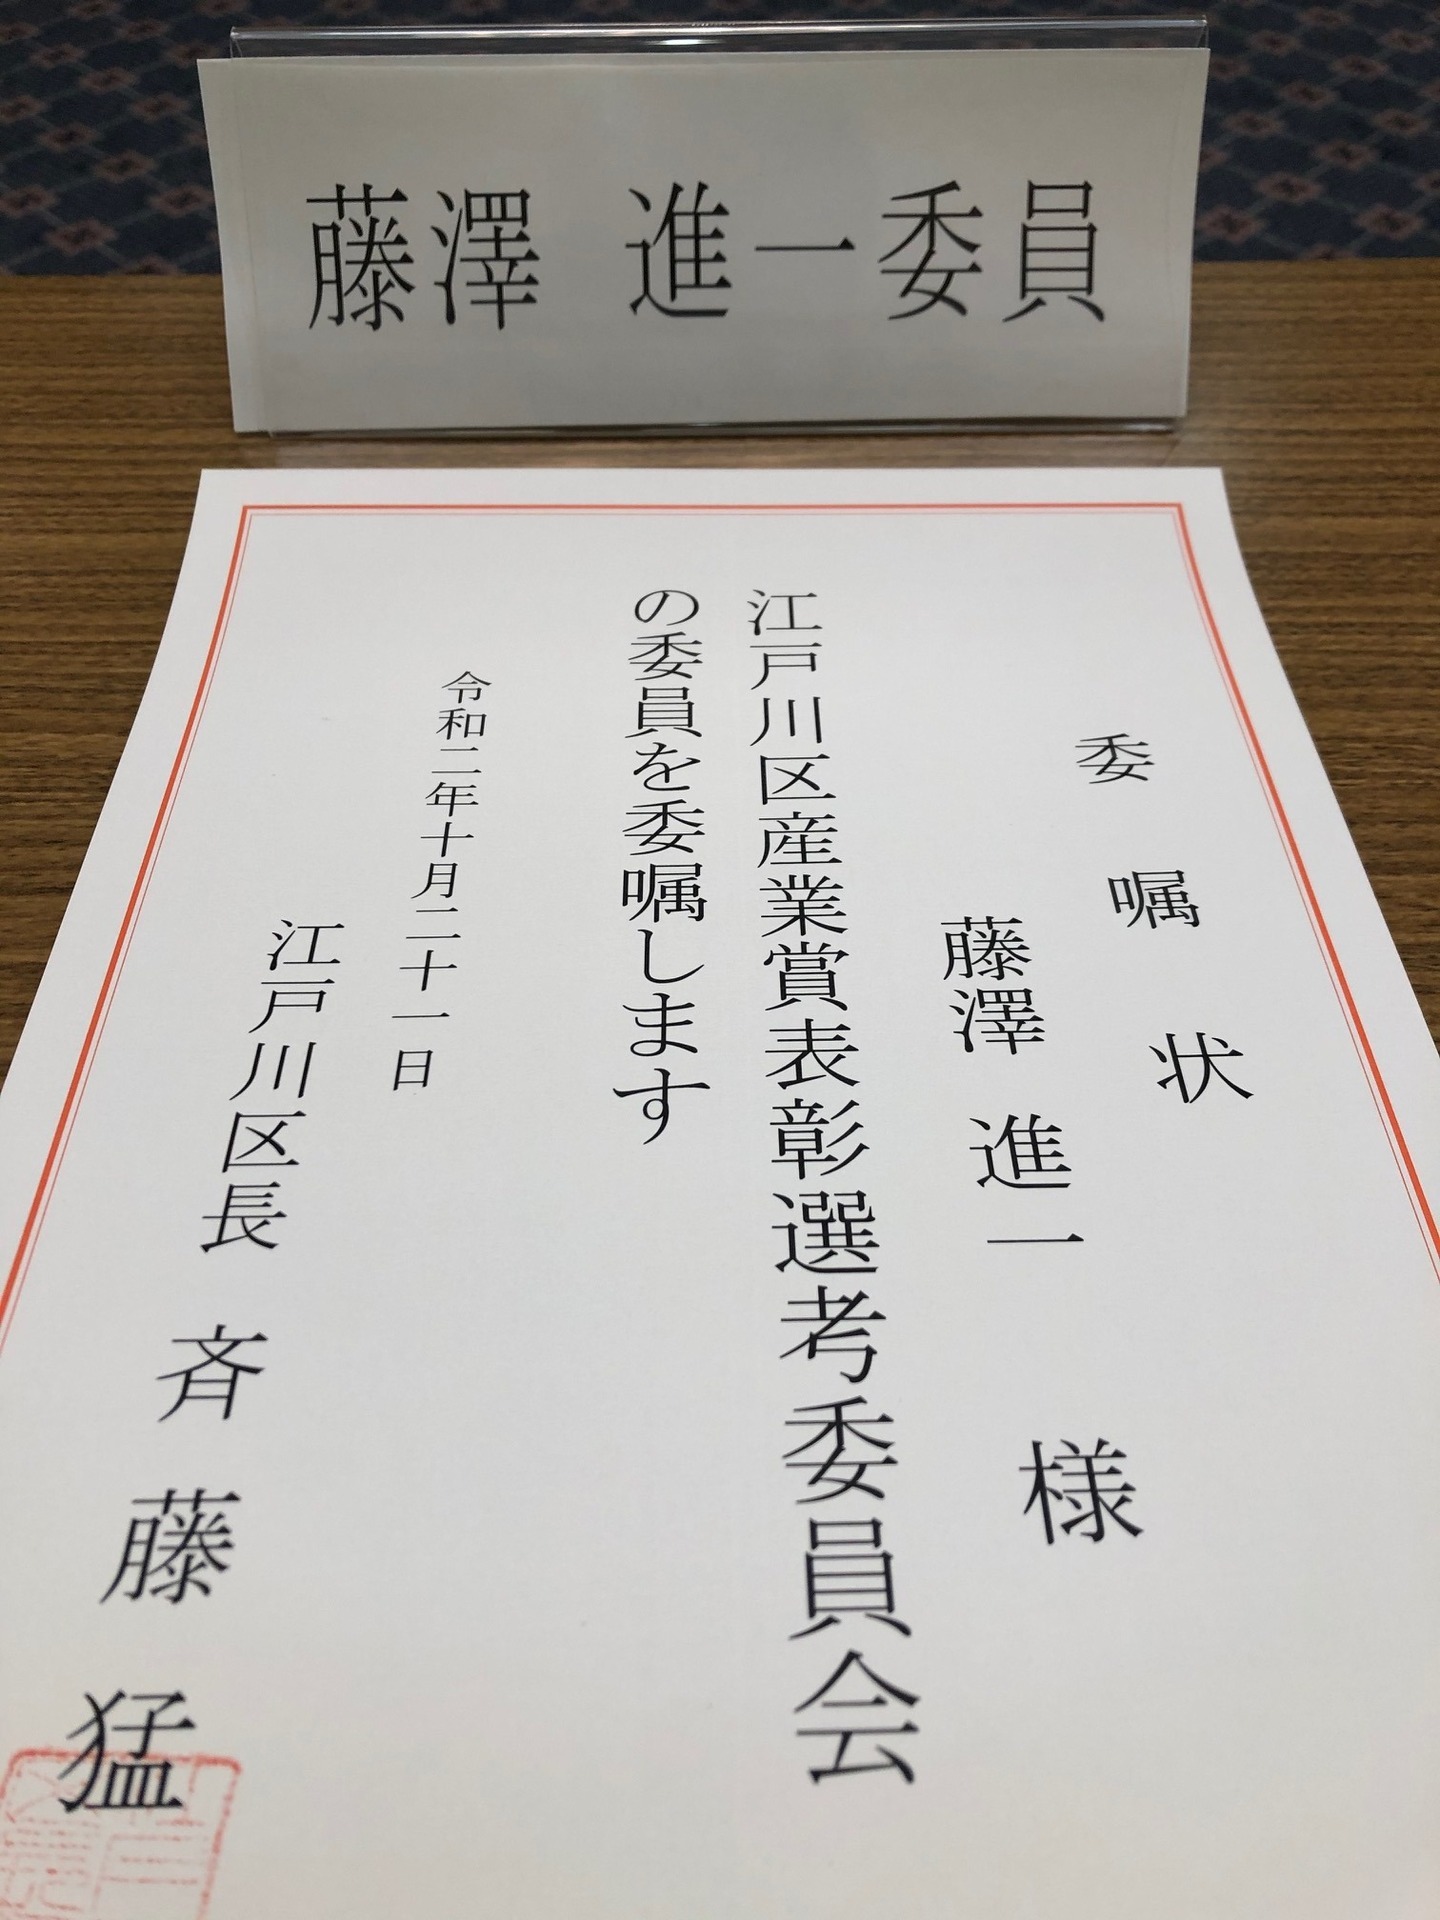 藤澤 進一委員
委嘱状
藤澤 進一 様
江戸川区産業賞表彰選考委員会
の委員を委嘱します
令和二年十月二十一日
江戸川区長 斉藤 猛